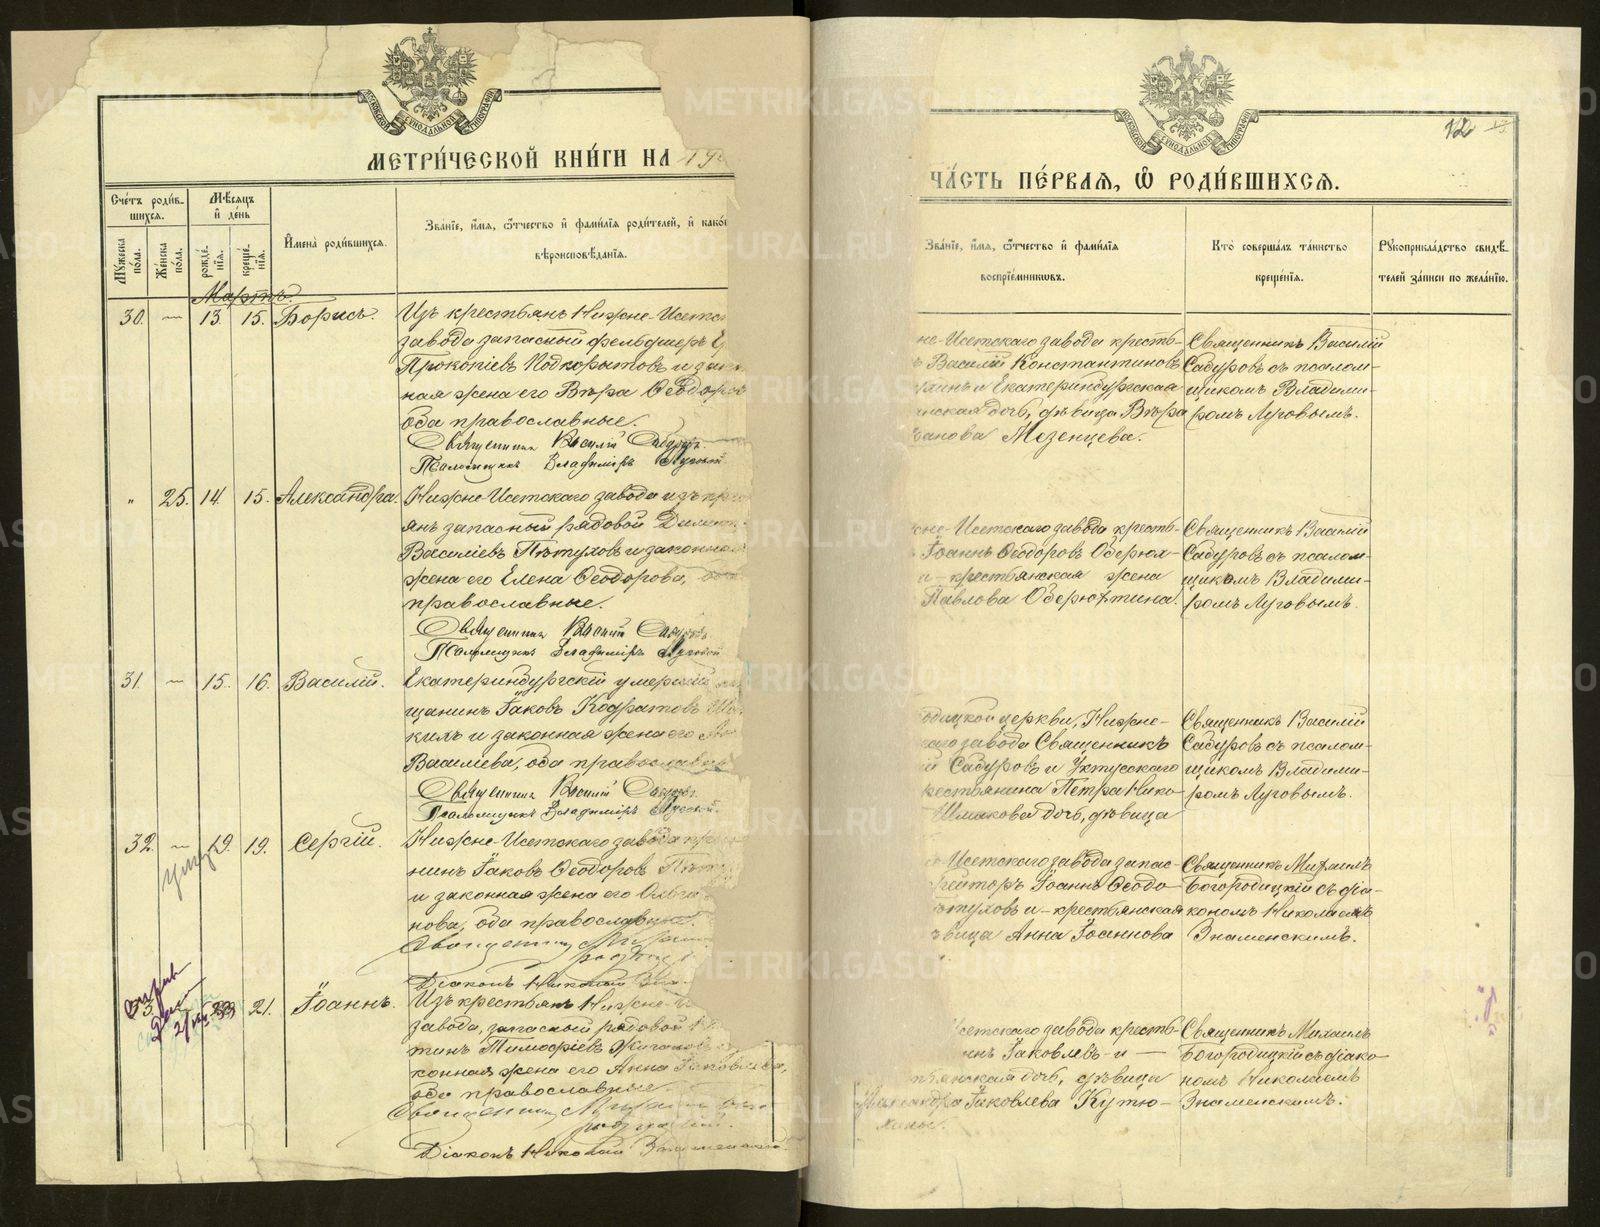 МЕТРИ́ЧЕСКОЙ КНИ́ГИ НА 19
Сче́тъ роди́в-
шихся.
Мѣ́сяцъ
и҆ де́нь
Мꙋ́жеска по́ла.
Же́нска по́ла.
рожде́нїѧ.
креще́нїѧ.
И҆мена̀ роди́вшихсѧ.
Зва́нїе, и҆́мѧ, ѻ҆́тчество и҆ фами́лїѧ роди́телей, и҆ како́
вѣроисповѣ́данїѧ.
Мартъ.
30. 13. 15. Борисъ.
Изъ крестьянъ Нижне-Исетс
завода запасный фельдшеръ
Прокопіевъ Подкорытовъ и зак
ная жена его Вѣра Ѳеодоров
оба православные.
Священникъ Василій Сабуровъ
Псаломщикъ Владиміръ Луговый
" 25. 14. 15. Александра.
Нижне-Исетскаго завода изъ кре
янъ запасный рядовой
Василіевъ Пѣтуховъ и законная
жена его Елена Ѳеодорова,
православные.
Священникъ Василій Сабуровъ
Псаломщикъ Владиміръ Луговой
31. 15. 16. Василій.
Екатеринбургскій умершій
щанинъ Іаковъ Кодратовъ
кихъ и законная жена его
Василіева, оба православные
Священникъ Василій Сабуровъ
Псаломщикъ Владиміръ Луговой.
32. 19. 19. Сергій.
умер
Нижне-Исетскаго завода кре
нинъ Іаковъ Ѳеодоровъ Пѣту
и законная жена его Ольга
нова, оба православные.
Священникъ Михаил
Діаконъ Николай
33. 21. Іоаннъ.
Изъ крестьянъ Нижне-И
завода, запасный рядовой
тинъ Тимоѳіевъ Жигаловъ
конная жена его Анна Іаковлева,
оба православные.
Священникъ Михаил
Діаконъ Николай Знаменскій
12
ЧА́СТЬ ПЕ́РВАѦ, Ѡ҆ РОДИ́ВШИХСѦ.
Зва́нїе, и҆́мѧ, ѻ҆́тчество и҆ фами́лїѧ
воспрїе́мникѡвъ.
Кто̀ соверша́лъ та́инство
креще́нїѧ.
Рꙋкоприкла́дство свидѣ́-
телей за́писи по жела́нїю.
не-Исетскаго завода кресть-
ъ Василій Константиновъ
и Екатеринбургская
нская дочь, дѣвица Вѣра
Мезенцева.
Священникъ Василій
Сабуровъ съ псалом-
щикомъ Владими-
ромъ Луговымъ.
не-Исетскаго завода кресть-
Іоаннъ Ѳеодоровъ Оберюх-
и - крестьянская жена
Павлова Оберюхтина.
Священникъ Василій
Сабуровъ съ псалом-
щикомъ Владими-
ромъ Луговымъ.
одицкой церкви, Нижне-
каго завода Священникъ
ій Сабуровъ и Уктусскаго
рестьянина Петра Нико
Шмакова дочь, дѣвица
Священникъ Василій
Сабуровъ съ псалом-
щикомъ Владими-
ромъ Луговымъ.
-Исетскаго завода запас-
рейторъ Іоаннъ Ѳеодо-
ѣтуховъ и - крестьянская
ѣвица Анна Іоаннова
Священникъ Михаилъ
Богородицкій съ діа-
кономъ Николаемъ
Знаменскимъ.
Исетскаго завода кресть-
ннъ Іаковлевъ - и -
тьянская дочь, дѣвица
Іаковлева Кутю-
хины.
Священникъ Михаилъ
Богородицкій съ діако-
номъ Николаемъ
Знаменскимъ.
METRIKI.GASO-URAL.RU